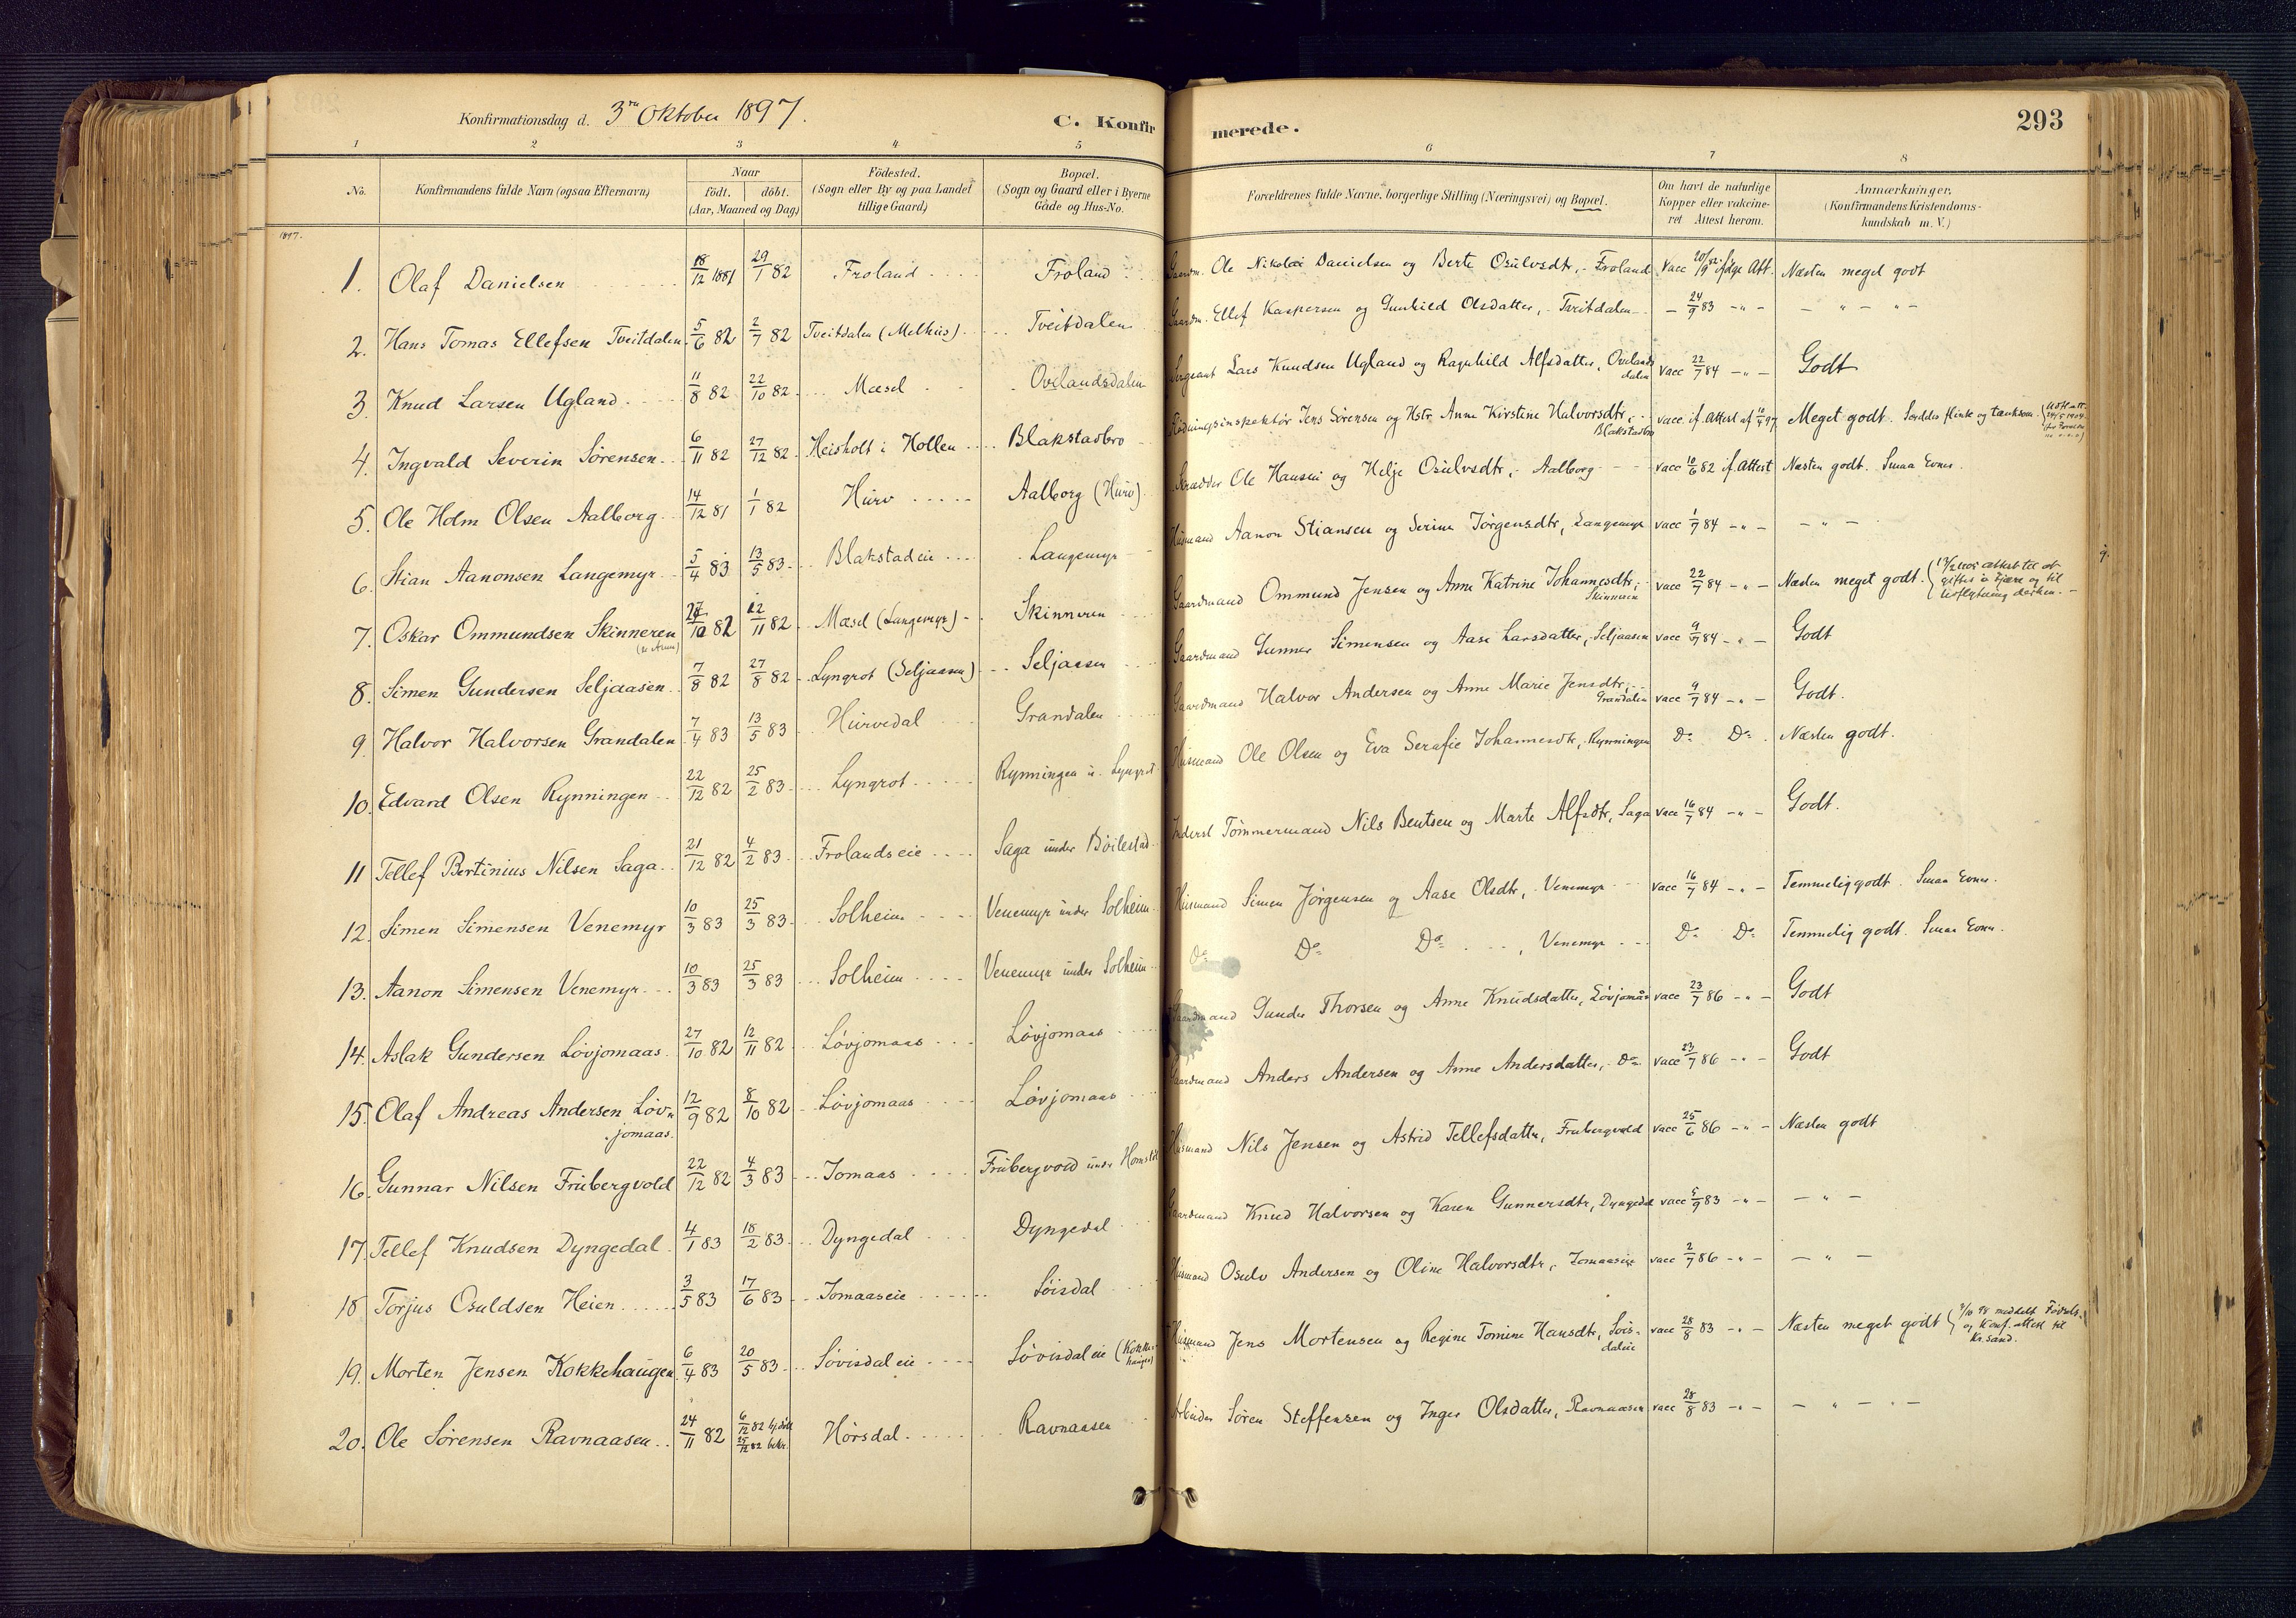 Konfirmationsdag d. 3die Oktober 1897. C. Konfirmerede. 293
1 2 3 4 5 6 7 8
No. Konfirmandens fulde Navn (ogsaa Efternavn) Naar födt. döbt. (Aar, Maaned og Dag) Födested. (Sogn eller By og paa Landet tillige Gaard) Bopæl. (Sogn og Gaard eller i Byerne Gade og Hus-No. Forældrenes fulde Navne, borgerlige Stilling (Næringsvei) og Bopæl. Om havt de naturlige Kopper eller vakcineret Attest herom. Anmærkninger, (Konfirmandens Kristendomskundskab m. V.)
1897.
1. Olaf Danielsen 18/12 1881 29/1 82 Froland Froland Gaardm. Ole Nikolai Danielsen og Berte Osulvsdtr, Froland vacc 20/9 82 ifølge Att. Næsten meget godt
2. Hans Tomas Ellefsen Tveitdalen 5/6 82 2/7 82 Tveitdalen (Melhus) Tveitdalen Gaardm. Ellef Kaspersen og Gunhild Olsdatter, Tveitdalen – 24/9 83 –"– – " – " –
3. Knud Larsen Ugland 11/8 82 22/10 82 Mæsel Ovelandsdalen Sergeant Lars Knudsen Ugland og Ragnhild Alfsdatter, Ovelandsdalen vacc 22/7 84 –"– Godt
4. Ingvald Severin Sørensen 6/11 82 27/12 82 Heisholt i Hollen Blakstadbro Flødningsinspektør Jens Sørensen og Hstr Anne Kirstine Halvorsdtr, Blakstadbro vacc. if. Attest af 10/4 97 Meget godt. Særdeles flink og tænksom.
5. Ole Holm Olsen Aalborg 14/12 81 1/1 82 Hurv Aalborg (Hurv) Skrædder Ole Hansen og Helje Osulvsdtr, Aalborg vacc 10/6 82 if. Attest Næsten godt. Smaa Evner.
6. Stian Aanonsen Langemyr 5/4 83 13/5 83 Blakstadeie Langemyr Husmand Aanon Stiansen og Serine Jörgensdtr, Langemyr vacc 1/7 84 –"– – " –
7. Oskar Ommundsen Skinneren 27/10 82 12/11 82 Mæsel (Langemyr) Skinneren Gaardmand Ommund Jensen og Anne Katrine Johannesdtr, Skinneren vacc 22/7 84 –"– Næsten meget godt. attest til at giftes i Fjære og til udflytning dertil.
8. Simen Gundersen Seljaasen 7/8 82 27/8 82 Lyngrot (Seljaasen) Seljaasen Gaardmand Gunner Simensen og Aase Larsdatter, Seljaasen vacc 9/7 84 –"– Godt
9. Halvor Halvorsen Grandalen 7/4 83 13/5 83 Hurvedal Grandalen Gaardmand Halvor Andersen og Anne Marie Jensdtr, Grandalen vacc 9/7 84 –"– Godt.
10. Edvard Olsen Rynningen 22/12 82 25/2 83 Lyngrot Rynningen u. Lyngrot Husmand Ole Olsen og Eva Serafie Johannesdtr, Rynningen Do Do Næsten godt.
11 Tellef Bertinius Nilsen Saga 21/12 82 4/2 83 Frolandseie Saga under Böilestad Inderst Tömmermand Nils Bentsen og Marte Alfsdtr, Saga vacc 16/7 84 –"– Godt.
12. Simen Simensen Venemyr 10/3 83 25/3 83 Solheim Venemyr under Solheim Husmand Simen Jørgensen og Aase Olsdtr, Venemyr vacc 16/7 84 –"– Temmelig godt. Smaa Evner.
13. Aanon Simensen Venemyr 10/3 83 25/3 83 Solheim Venemyr under Solheim Do Do Do, Venemyr Do Do Temmelig godt. Smaa Evner.
14. Aslak Gundersen Lövjomaas 27/10 82 12/11 82 Lövjomaas Lövjomaas Gaardmand Gunder Thorsen og Anne Knudsdatter, Lövjomås vacc 23/7 86 –"– Godt
15. Olaf Andreas Andersen Lövjomaas. 12/9 82 8/10 82 Lövjomaas Lövjomaas Gaardmand Anders Andersen og Anne Andersdatter, Do vacc 23/7 86 –"– Godt
16. Gunnar Nilsen Frubergvold 22/12 82 4/3 83 Jomaas Frubergvold under Homstöl Husmand Nils Jensen og Astrid Tellefsdatter, Frubergvold vacc 25/6 86 –"– Næsten godt
17. Tellef Knudsen Dyngedal 4/1 83 18/2 83 Dyngedal Dyngedal Gaardmand Knud Halvorsen og Karen Gunnersdtr, Dyngedal vacc 5/9 83 –"– – " –
18 Torjus Osuldsen Heien 3/5 83 17/6 83 Jomaaseie Löisdal Husmand Osulv Andersen og Oline Halvorsdtr, Jomaaseie vacc 2/7 86 –"– – " –
19. Morten Jensen Kokkehaugen 6/4 83 20/5 83 Lövisdaleie Lövisdaleie (Kokkehaugen) Husmand Jens Mortensen og Regine Tomine Hansdtr, Lövisdaleie vacc 28/8 83 –"– Næsten meget godt 3/10 98 meddelt Fødsels- og Konf. attest til Kr.sand.
20. Ole Sørensen Ravnaasen 24/11 82 6/12 82 hj.döbt 25/12 82 bekr. Hörsdal Ravnaasen Arbeider Sören Steffensen og Inger Olsdatter, Ravnaasen vacc 28/8 83 –"– – " – " –